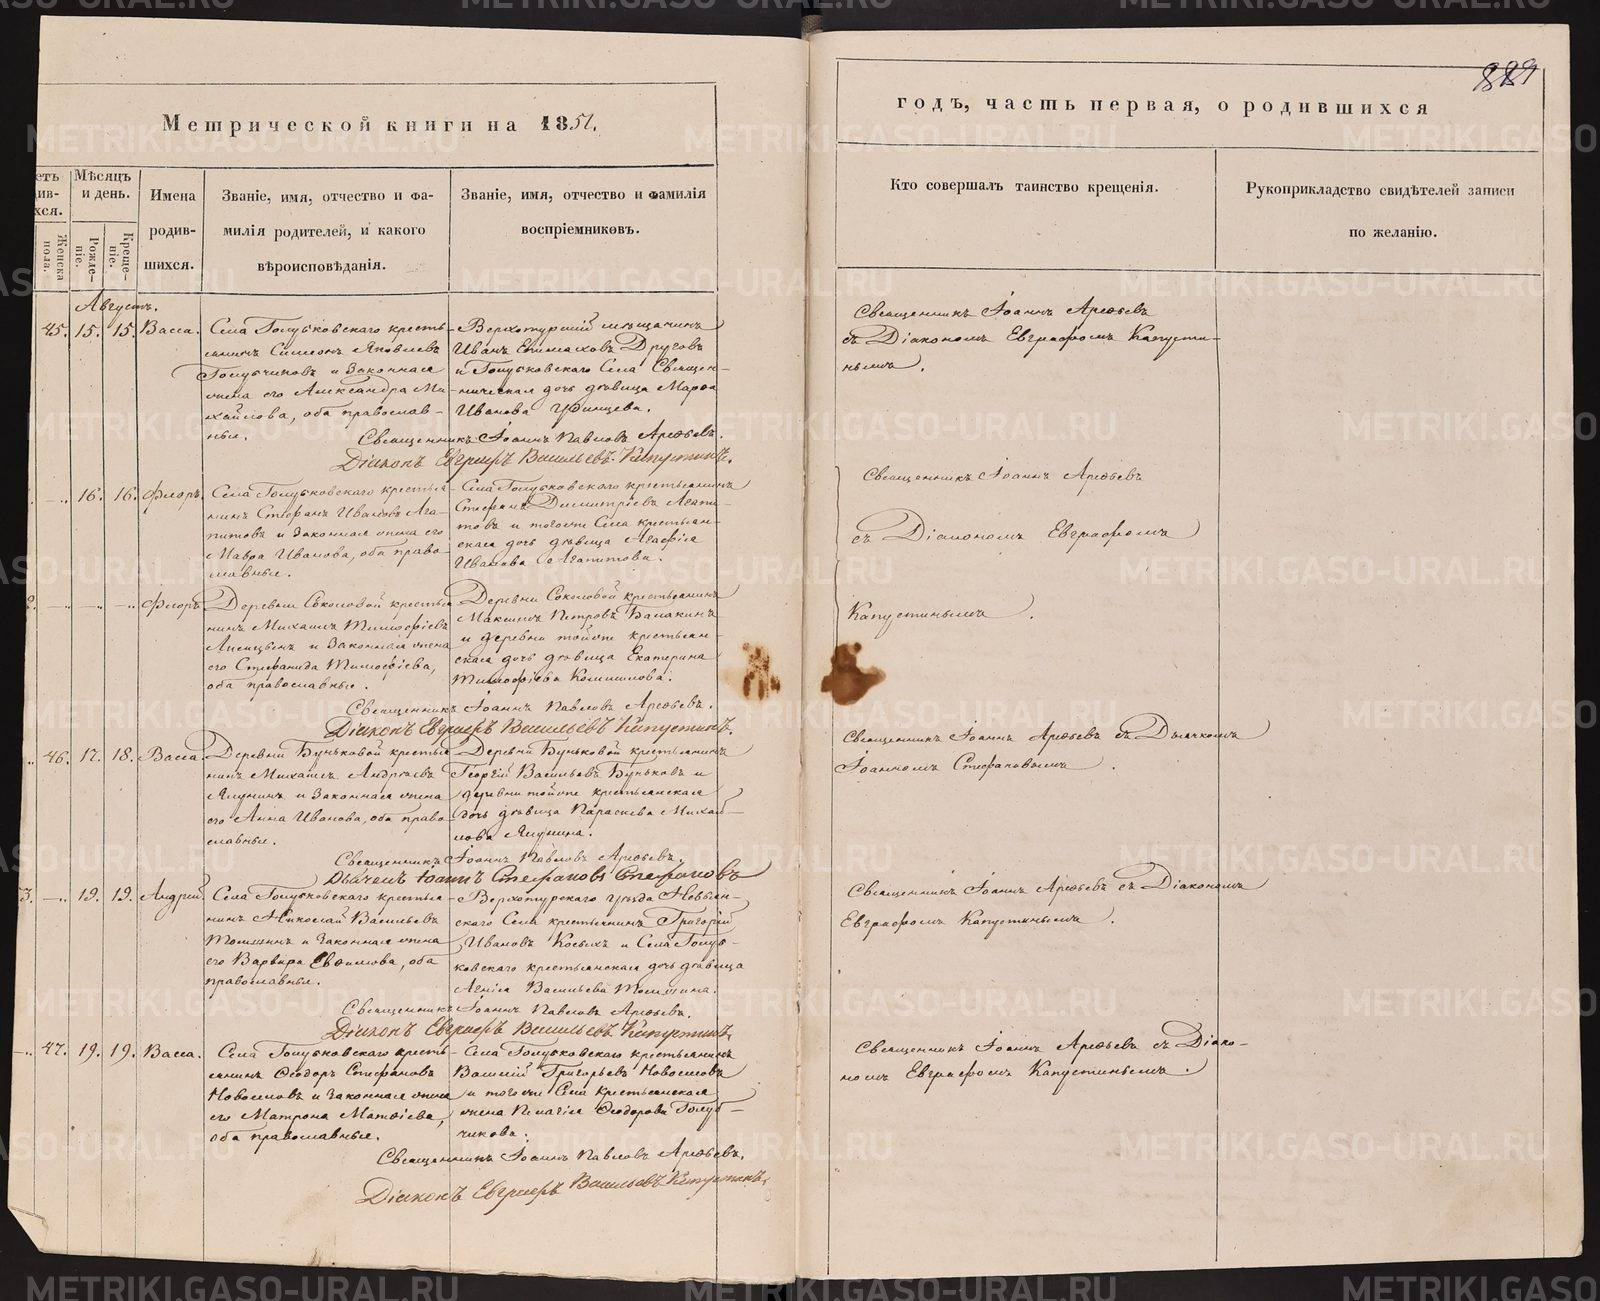 Метрической книги на 1851.
годъ, часть первая, о родившихся
Мѣсяцъ и день.
Женска пола.
Рожде-ніе.
Креще-ніе.
Имена родив-шихся.
Званіе, имя, отчество и фа-
милія родителей, и какого
вѣроисповѣданія.
Званіе, имя, отчество и фамилія
воспріемниковъ.
Кто совершалъ таинство крещенія.
Рукоприкладство свидѣтелей записи
по желанію.
Августъ.
45. 15. 15. Васса.
Села Голубковскаго кресть-
янинъ Симеонъ Яковлевъ
Голубчиковъ и законная
жена его Александра Ми-
хайлова, оба православ-
ные.
Верхотурскій мѣщанинъ
Иванъ Епимаховъ Друговъ
и Голубковскаго Села Священ-
ническая дочь дѣвица Марѳа
Иванова Удинцева.
Священникъ Іоаннъ Павловъ Арефьевъ.
Діаконъ Евграфъ Васильевъ Капустинъ.
Священникъ Іоаннъ Арефьевъ
съ Діакономъ Евграфомъ Капусти-
нымъ.
16. 16. Флоръ.
Села Голубковскаго крестья-
нинъ Стефанъ Ивановъ Ага-
питовъ и законная жена его
Мавра Иванова, оба право-
славные.
Села Голубковскаго крестьянинъ
Стефанъ Димитріевъ Агапи-
товъ и тогоже Села крестьян-
ская дочь дѣвица Агафія
Иванова Агапитова.
Флоръ
Деревни Соколовой крестья
нинъ Михаилъ Тимофѣевъ
и законная жена
его Стефанида Тимофѣева,
оба православные.
Деревни Соколовой крестьянинъ
Максимъ Петровъ
и деревни тойже крестьян-
ская дочь дѣвица Екатерина
Тимофѣева
Священникъ Іоаннъ Павловъ Арефьевъ.
Діаконъ Евграфъ Васильевъ Капустинъ.
Священникъ Іоаннъ Арефьевъ
съ Діакономъ Евграфомъ
Капустинымъ.
46. 17. 18. Васса
Деревни Буньковой крестья
нинъ Михаилъ Андреевъ
Ялунинъ и законная жена
его Анна Иванова, оба право-
славные.
Деревни Буньковой крестьянинъ
Георгій Васильевъ Буньковъ и
деревни тойже крестьянская
дочь дѣвица Параскева Михай-
лова Ялунина.
Священникъ Іоаннъ Павловъ Арефьевъ.
Дьячекъ Іоаннъ Стефановъ Стефановъ
Священникъ Іоаннъ Арефьевъ съ Дьячкомъ
Іоанномъ Стефановымъ.
3. 19. 19. Андрей.
Села Голубковскаго крестья-
нинъ Николай Васильевъ
Томшинъ и законная жена
его Варвара Евфимова, оба
православные.
Верхотурскаго уѣзда Невьян-
скаго Села крестьянинъ Григорій
Ивановъ Косыхъ и Села Голуб-
ковскаго крестьянская дочь дѣвица
Агнія Васильева Томшина.
Священникъ Іоаннъ Павловъ Арефьевъ.
Діаконъ Евграфъ Васильевъ Капустинъ.
Священникъ Іоаннъ Арефьевъ съ Діакономъ
Евграфомъ Капустинымъ.
47. 19. 19. Васса.
Села Голубковскаго кресть-
янинъ Ѳеодоръ Стефановъ
Новоселовъ и законная жена
его Матрона Матвѣева,
оба православные.
Села Голубковскаго крестьянинъ
Василій Григорьевъ Новоселовъ
и тогоже Села крестьянская
жена Пелагія Ѳеодорова Голуб-
чикова.
Священникъ Іоаннъ Павловъ Арефьевъ.
Діаконъ Евграфъ Васильевъ Капустинъ.
Священникъ Іоаннъ Арефьевъ съ Діако-
номъ Евграфомъ Капустинымъ.
METRIKI.GASO-URAL.RU